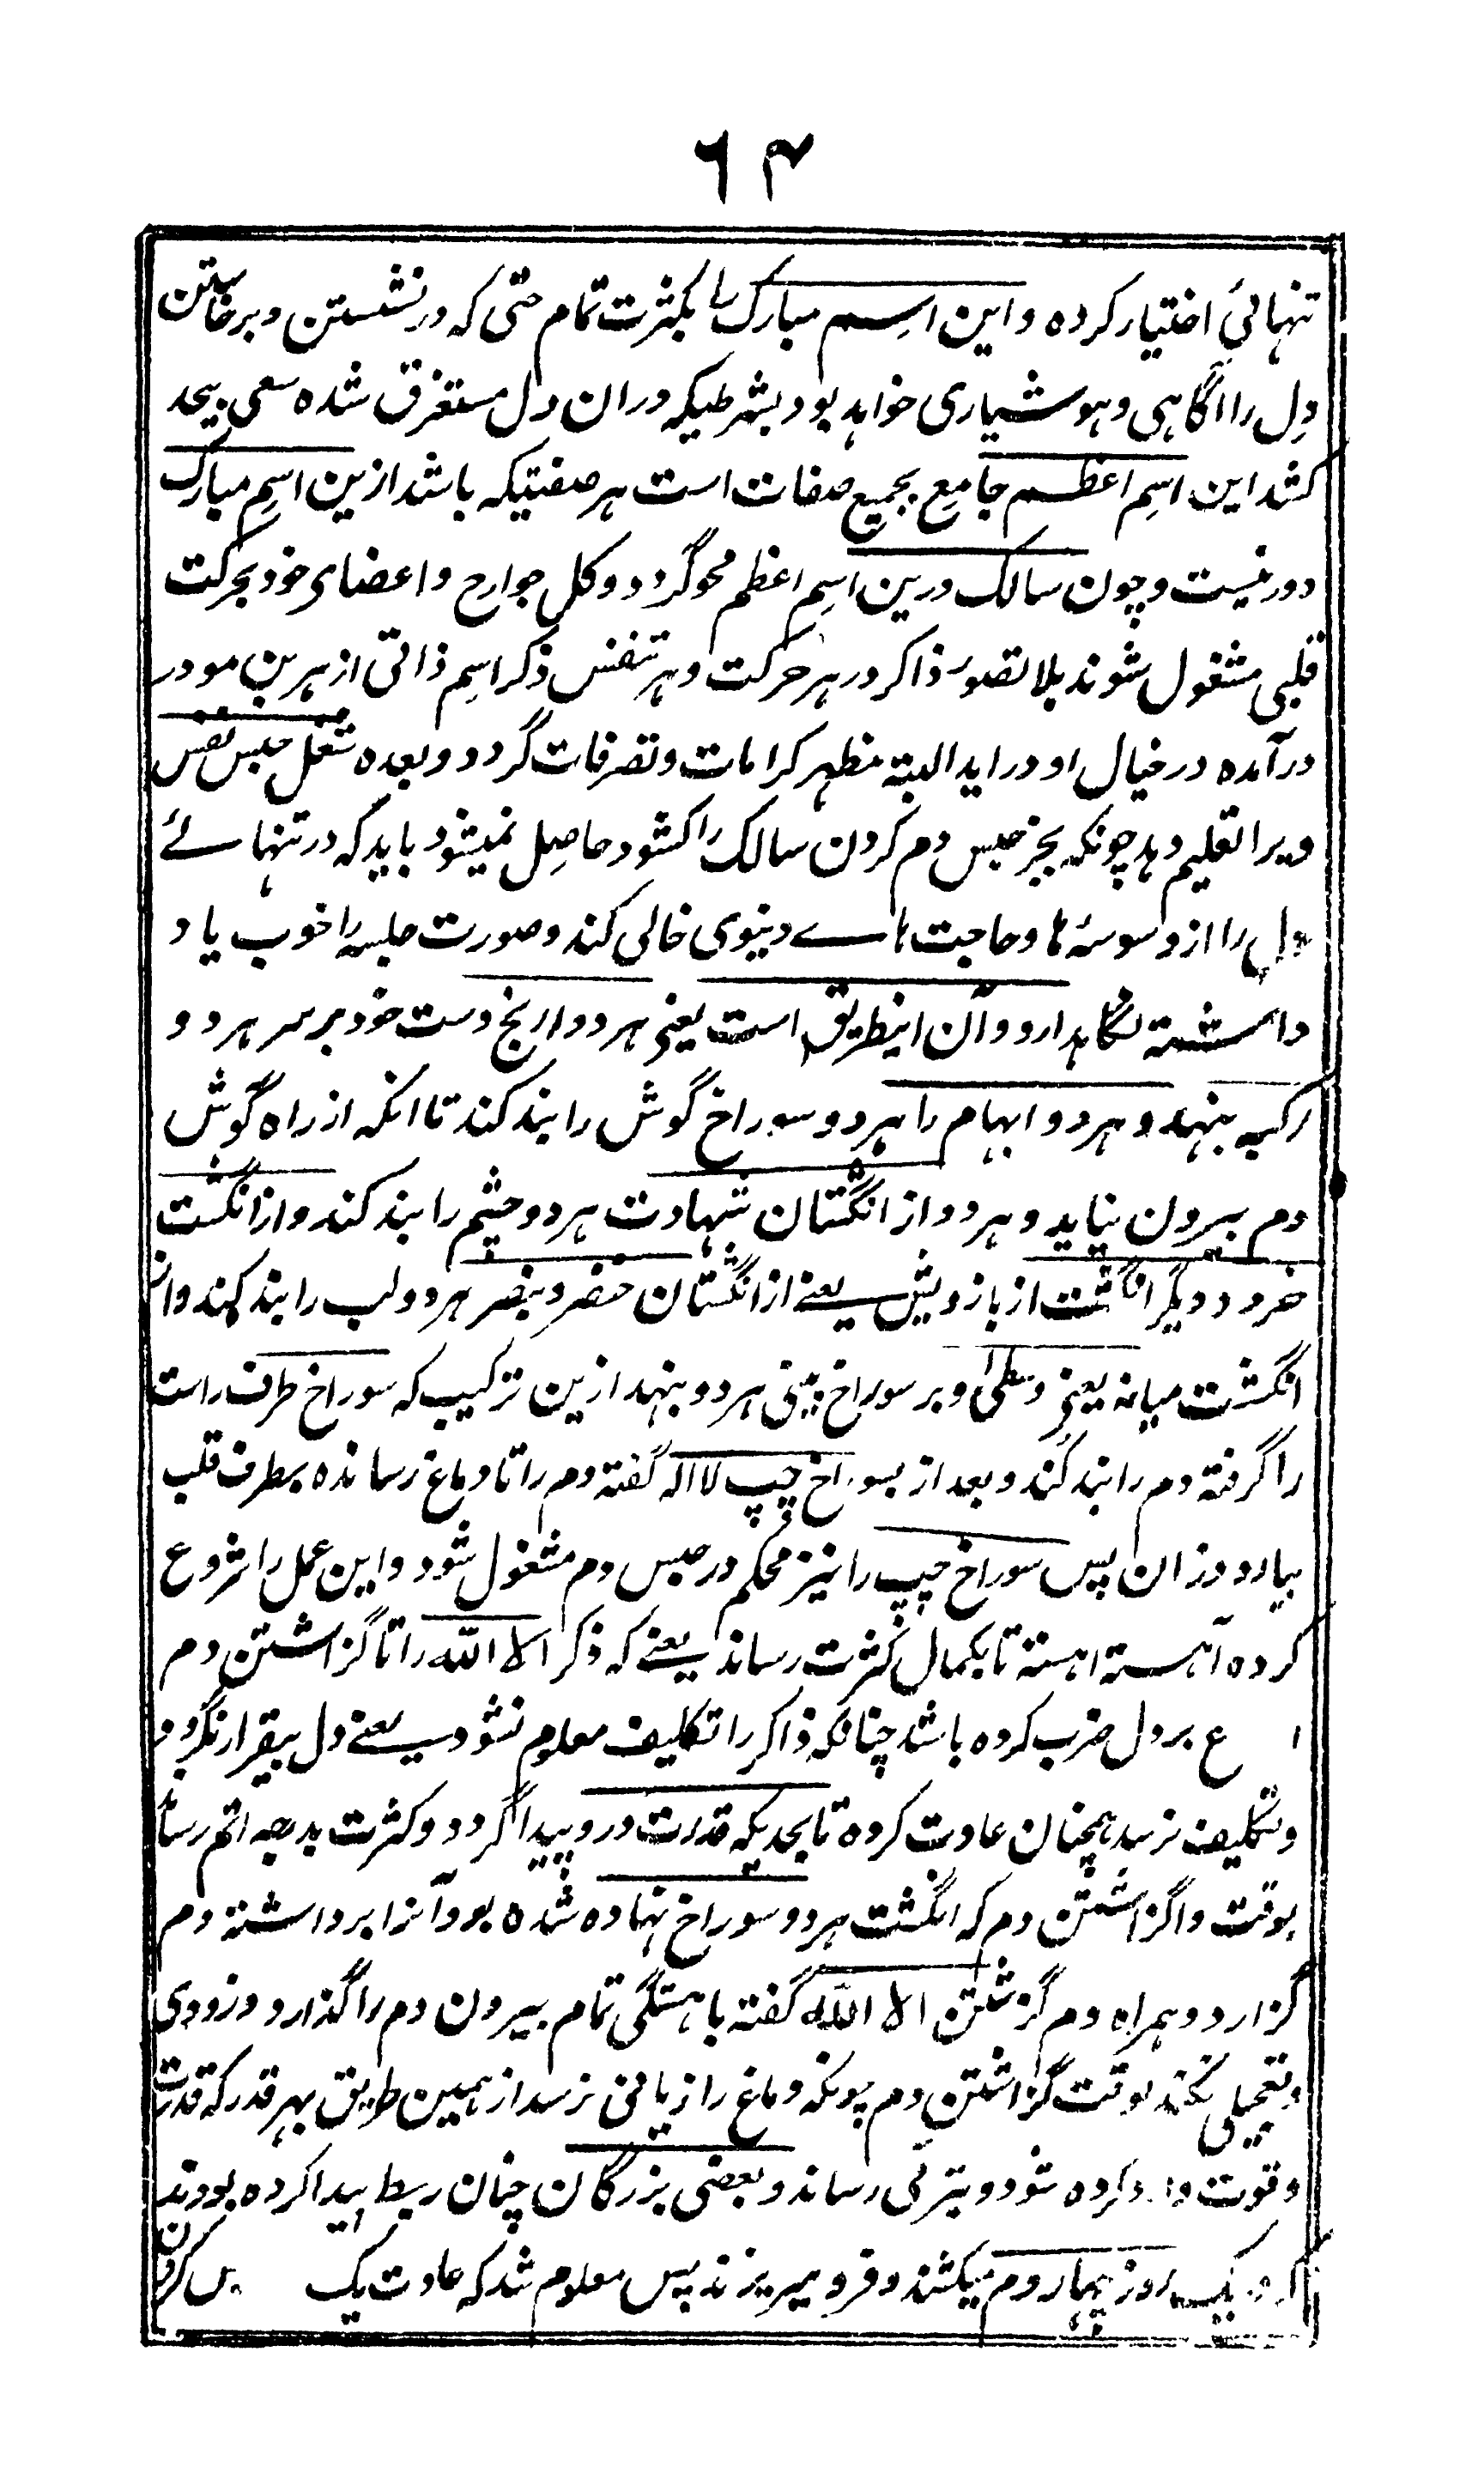 ۶۴
تنہائی اختیار کردہ و این اسم مبارک را بکثرت تمام حتی کہ در نشستن و برخاستن
دل را آگاہی و ہوشیاری خواہد بود بشرطیکہ دران دل مستغرق شدہ سعی بیحد
کشد این اسم اعظم جامع بجمیع صفات است ہر صفتیکہ باشد ازین اسم مبارک
دور نیست و چون سالک درین اسم اعظم محو گردد و کل جوارح و اعضای خود بحرکت
قلبی مشغول شوند بلا تصور ذاکر در ہر حرکت و ہر تنفس ذکر اسم ذاتی از ہر بن مو در
درآمدہ در خیال او در اید البتہ مظہر کرامات و تصرفات گردد و بعدہ شغل حبس نفس
ویرا تعلیم دہد چونکہ بجز حبس دم کردن سالک را کشود حاصل نمیشود باید کہ در تنہائے
دل را از وسوسۂ ہا و حاجت ہاے دنیوی خالی کند و صورت جلسہ را خوب یاد
داشتہ نگاہدارد و آن اینطریق است یعنی ہر دو ارنج دست خود بر سر ہر دو
رکبہ بنہد و ہر دو ابہام را ہر دو سوراخ گوش را بند کند تا انکہ از راہ گوش
دم بیرون نیاید و ہر دو از انگشتان شہادت ہر دو چشم را بند کند و از انگشت
خرد و دیگر انگشت از بازویش یعنے از انگشتان خنصر و بنصر ہر دو لب را بند کند و از
انگشت میانہ یعنی وسطیٰ و بر سوراخ بینی ہر دو بنہد ازین ترکیب کہ سوراخ طرف راست
را گرفتہ دم را بند کند و بعد از بسوراخ چپ لا الہ گفتہ دم را تا دماغ رساندہ بطرف قلب
بیارد و زان پس سوراخ چپ را نیز محکم در حبس دم مشغول شود و این عمل را شروع
کردہ آہستہ اہستہ تا بکمال کثرت رساند یعنے کہ ذکر الا اللہ را تا گزاشتن دم
بر دل ضرب کردہ باشد چنانکہ ذاکر را تکلیف معلوم نشود یعنے دل بیقرار نگردد
و تکلیف نرسد ہمچنان عادت کردہ تا بحدیکہ قدرت درو پیدا گردد و کثرت بدرجہ اتم رساند
بوقت واگزاشتن دم کہ انگشت ہر دو سوراخ نہادہ شدہ بود آنرا برداشتہ دم
گزارد و ہمراہ دم گزشتن الا اللہ گفتہ باہستگی تمام بیرون دم را گذارد و زودی
و تعجیلی نکند بوقت گزاشتن دم چونکہ دماغ را زیانی نرسد از ہمین طریق بہر قدر کہ قدرت
و قوت کردہ شود و بترقی رساند و بعضی بزرگان چنان ربط پیدا کردہ بودند
یک روز یکبار دم میکشند و فرو میریزند پس معلوم شد کہ عادت یک